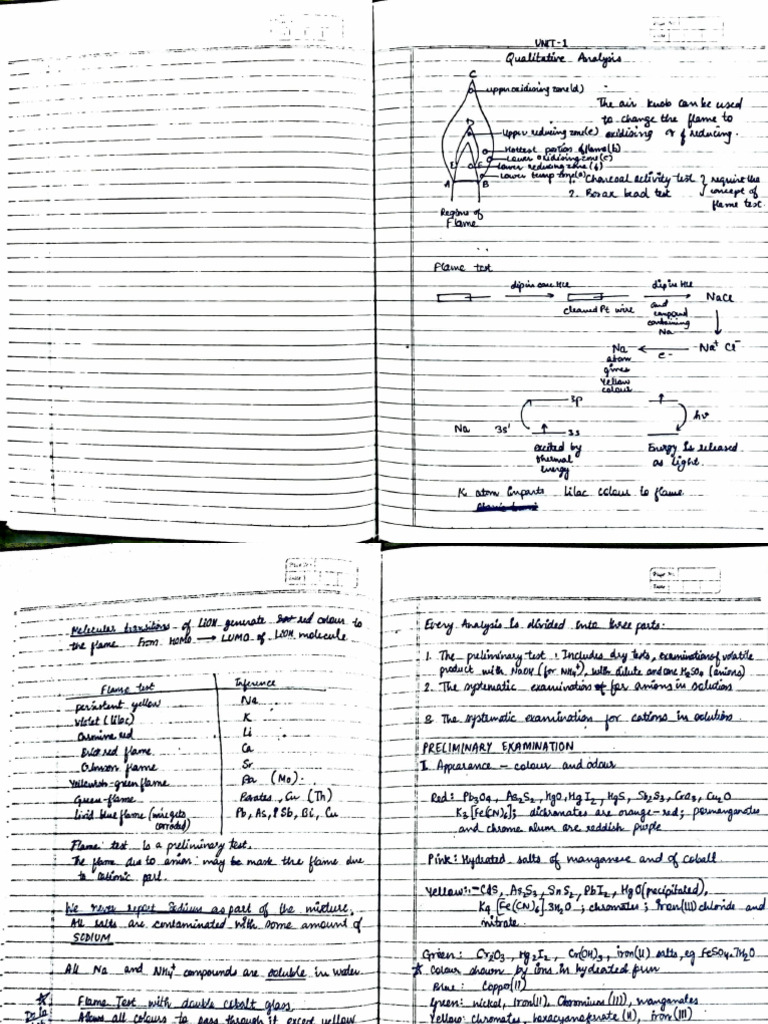 UNIT-1
Qualitative Analysis
C
upper oxidising zone(d)
The air knob can be used
to change the flame to
oxidising or reducing.
D
Upper reducing zone(e)
Hottest portion of flame(b)
Lower oxidising zone(c)
Lower reducing zone(f)
Lower temp zone(a)
E
F
A
B
1. Charcoal activity test
2. Borax bead test
} require the
concept of
flame test.
Regions of
Flame
Flame test
dip in conc HCl
cleaned Pt wire
dip in HCl
and
compound
containing
Na
NaCl
Na⁺ Cl⁻
e-
Na
atom
gives
Yellow
colour
Na 3s¹
3p
3s
excited by
thermal
energy
hν
Energy is released
as light.
K atom imparts Lilac colour to flame
Molecular transitions of LiOH generate red colour to
the flame. From HOMO → LUMO of LiOH molecule
Flame test Inference
persistent yellow Na
violet (lilac) K
Carmine red Li
Brick red flame Ca
Crimson flame Sr
Yellowish-green flame Ba (Mo)
Green-flame Borates, Cu (Th)
Livid blue flame (wire gets
corroded) Pb, As, Sb, Bi, Cu
Flame test is a preliminary test.
The flame due to anion may be mask the flame due
to cationic part.
We never report Sodium as part of the mixture.
All salts are contaminated with some amount of
SODIUM
All Na and NH₄⁺ compounds are soluble in water
Flame Test with double cobalt glass
Allows all colours to pass through it except yellow
Every Analysis is divided into three parts.
1. The preliminary test : Includes dry tests, examination of volatile
product with NaOH (for NH₄⁺), with dilute and conc H₂SO₄ (anions)
2. The systematic examination of for anions in solution
3. The systematic examination for cations in solution
PRELIMINARY EXAMINATION
I. Appearance - colour and odour
Red: Pb₃O₄, As₂S₂, HgO, HgI₂, HgS, Sb₂S₃, CrO₃, Cu₂O
K₃[Fe(CN)₆]; dichromates are orange-red; permanganates
and chrome alum are reddish purple
Pink: Hydrated salts of manganese and of cobalt
Yellow:- CdS, As₂S₃, SnS₂, PbI₂, HgO (precipitated),
K₄[Fe(CN)₆].3H₂O ; chromates; iron(III) chloride and
nitrate.
Green: Cr₂O₃, Hg₂I₂, Cr(OH)₃, iron(II) salts, eg FeSO₄.7H₂O
colour shown by ions in hydrated form
Blue: Copper(II)
Green: nickel, iron(II), chromium(III), manganates
Yellow: chromates, hexacyanoferrate(II), iron(III)